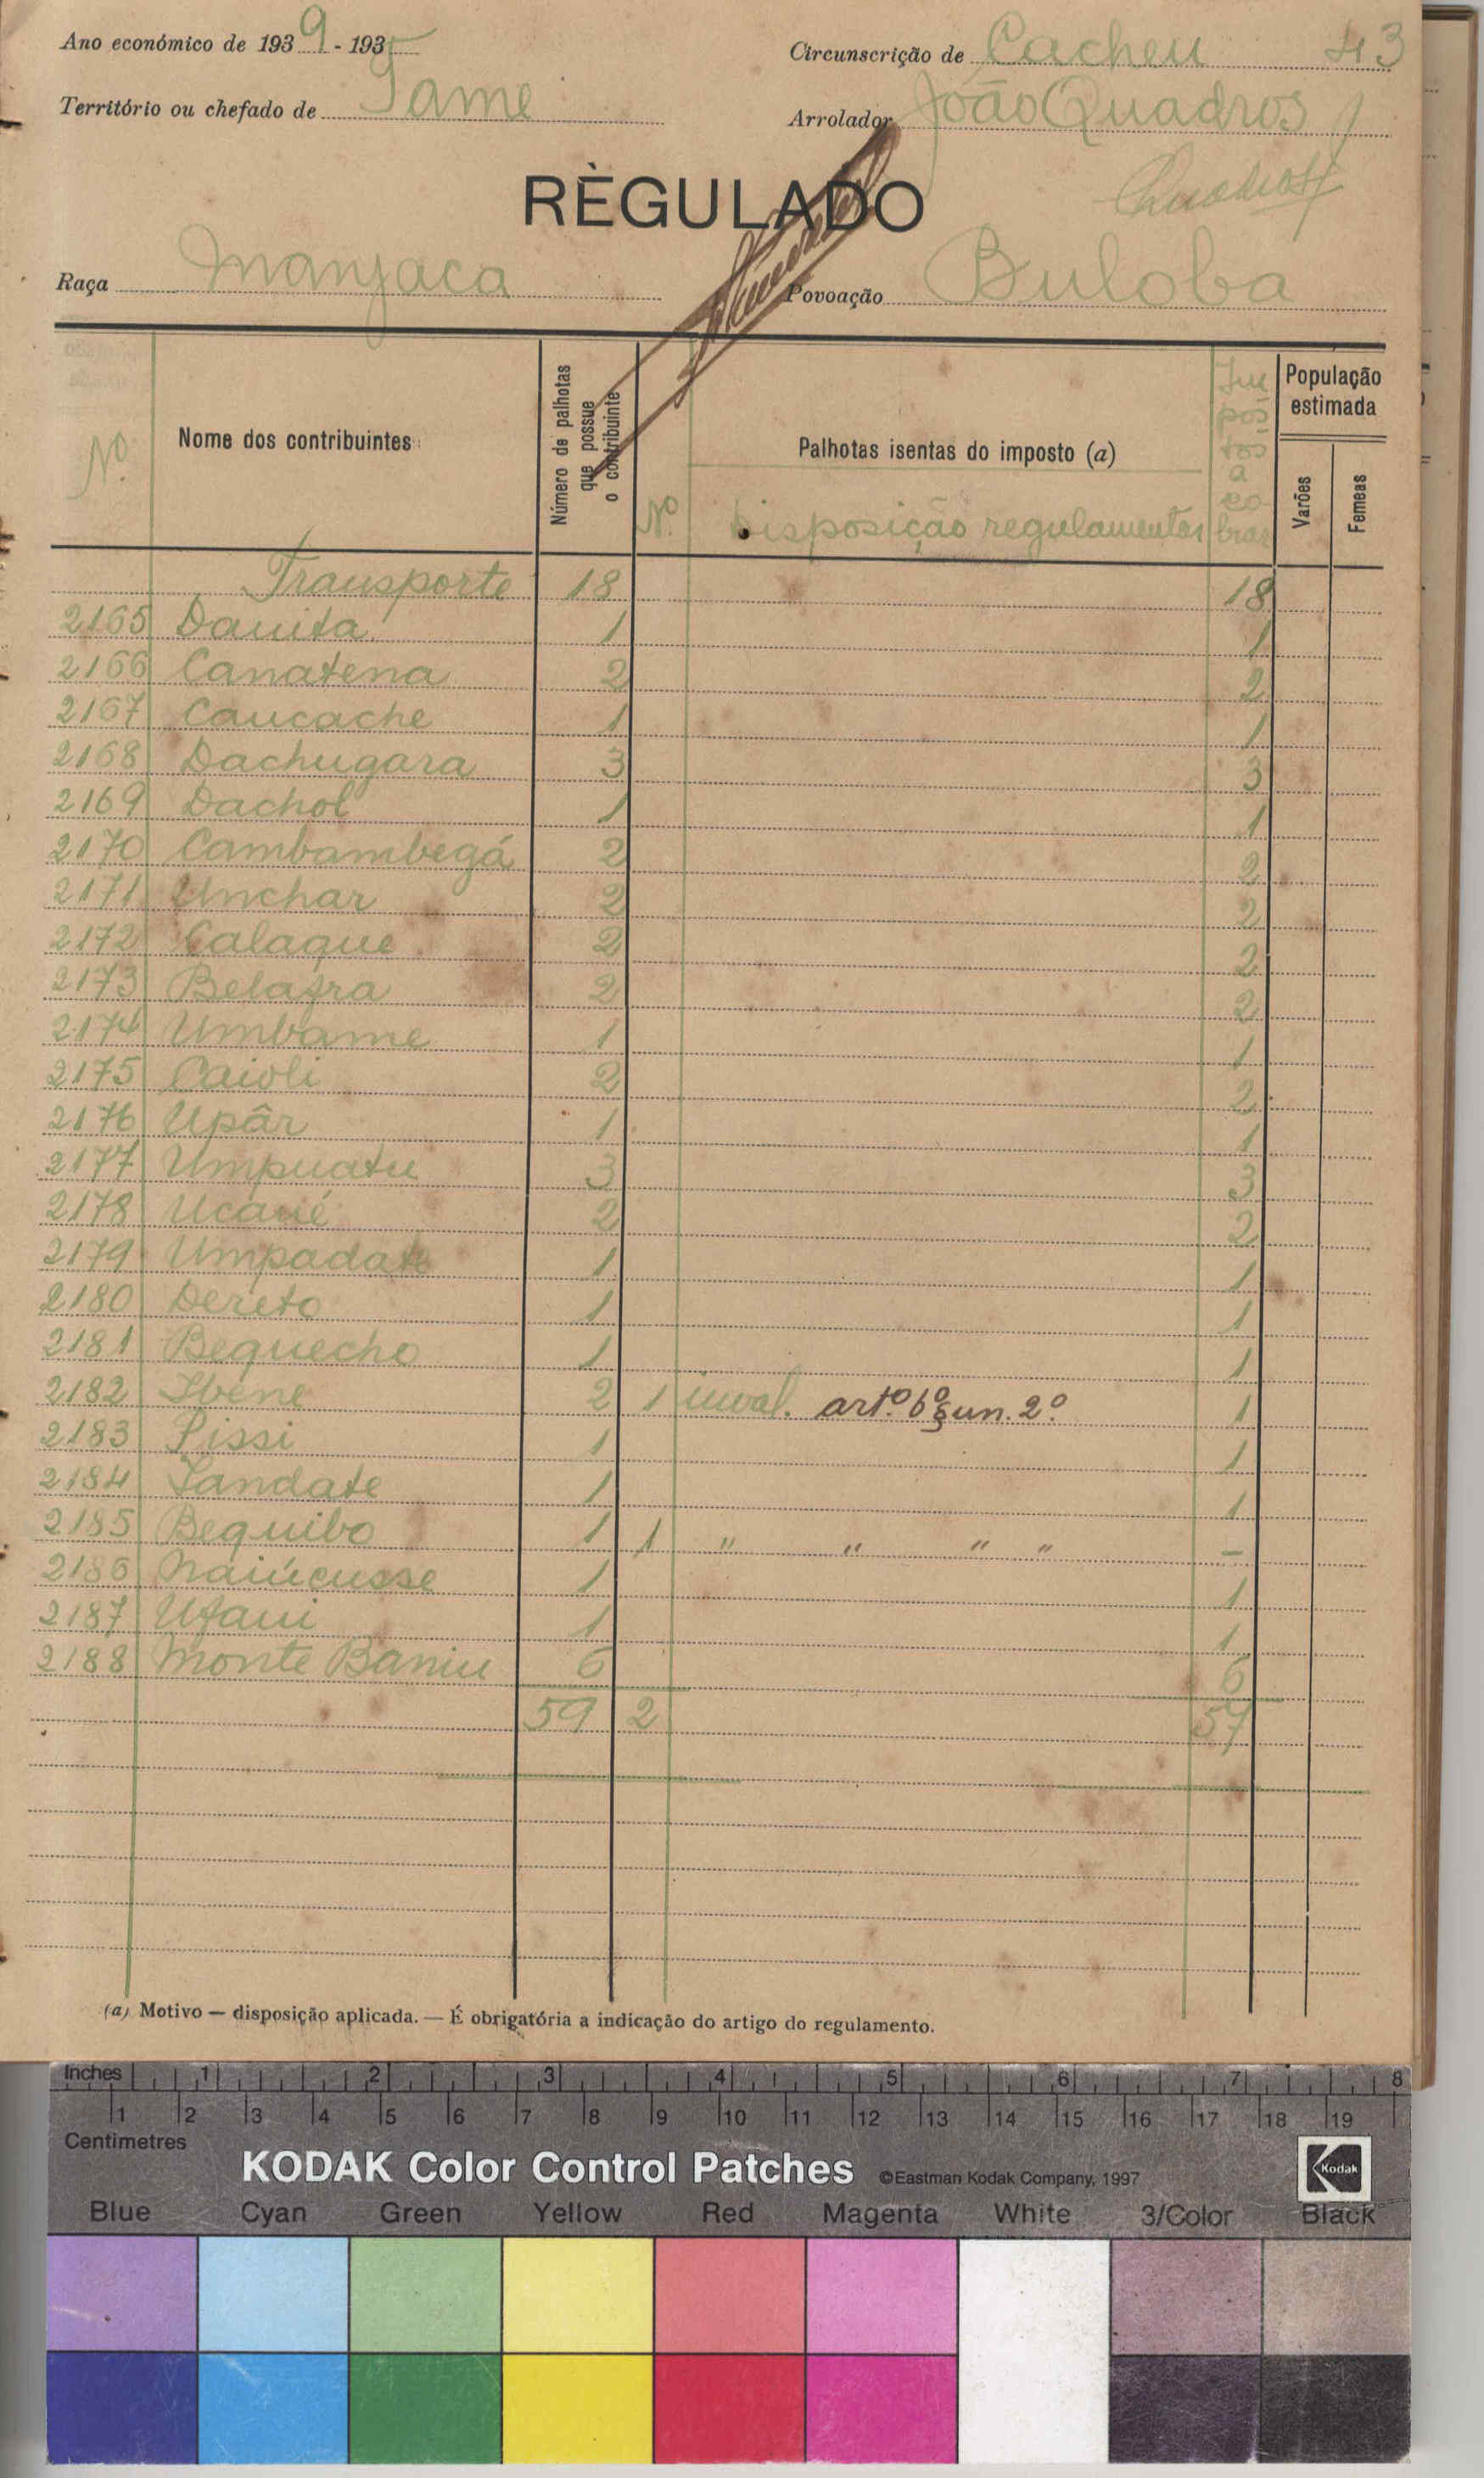 Ano económico de 1939 - 193
Circunscrição de Cacheu 43
Território ou chefado de Tame
Arrolador João Quadros
RÈGULADO
Quadros
Raça Manjaca
Povoação Buloba
Nº
Nome dos contribuintes
Número de palhotas que possue o contribuinte
Nº
Palhotas isentas do imposto (a)
Disposição regulamentar
Impostos a cobrar
População estimada
Varões
Femeas
Transporte 18 18
2165 Danita 1 1
2166 Canatena 2 2
2167 Caucache 1 1
2168 Dachugara 3 3
2169 Dachol 1 1
2170 Cambambegá 2 2
2171 Unchar 2 2
2172 Calaque 2 2
2173 Belafra 2 2
2174 Umbame 1 1
2175 Caioli 2 2
2176 Upâr 1 1
2177 Umpuatu 3 3
2178 Ucaué 2 2
2179 Umpadate 1 1
2180 Dereto 1 1
2181 Bequecho 1 1
2182 Ibène 2 1 inval. artº. 6º § un. 2º. 1
2183 Pissi 1 1
2184 Landate 1 1
2185 Bequibo 1 1 " " " " -
2186 Naiúcusse 1 1
2187 Ufaui 1 1
2188 Monte Baniu 6 6
59 2 57
(a) Motivo — disposição aplicada. — É obrigatória a indicação do artigo do regulamento.
Inches 1 2 3 4 5 6 7 8
1 2 3 4 5 6 7 8 9 10 11 12 13 14 15 16 17 18 19
Centimetres
KODAK Color Control Patches ©Eastman Kodak Company, 1997 Kodak
Blue Cyan Green Yellow Red Magenta White 3/Color Black